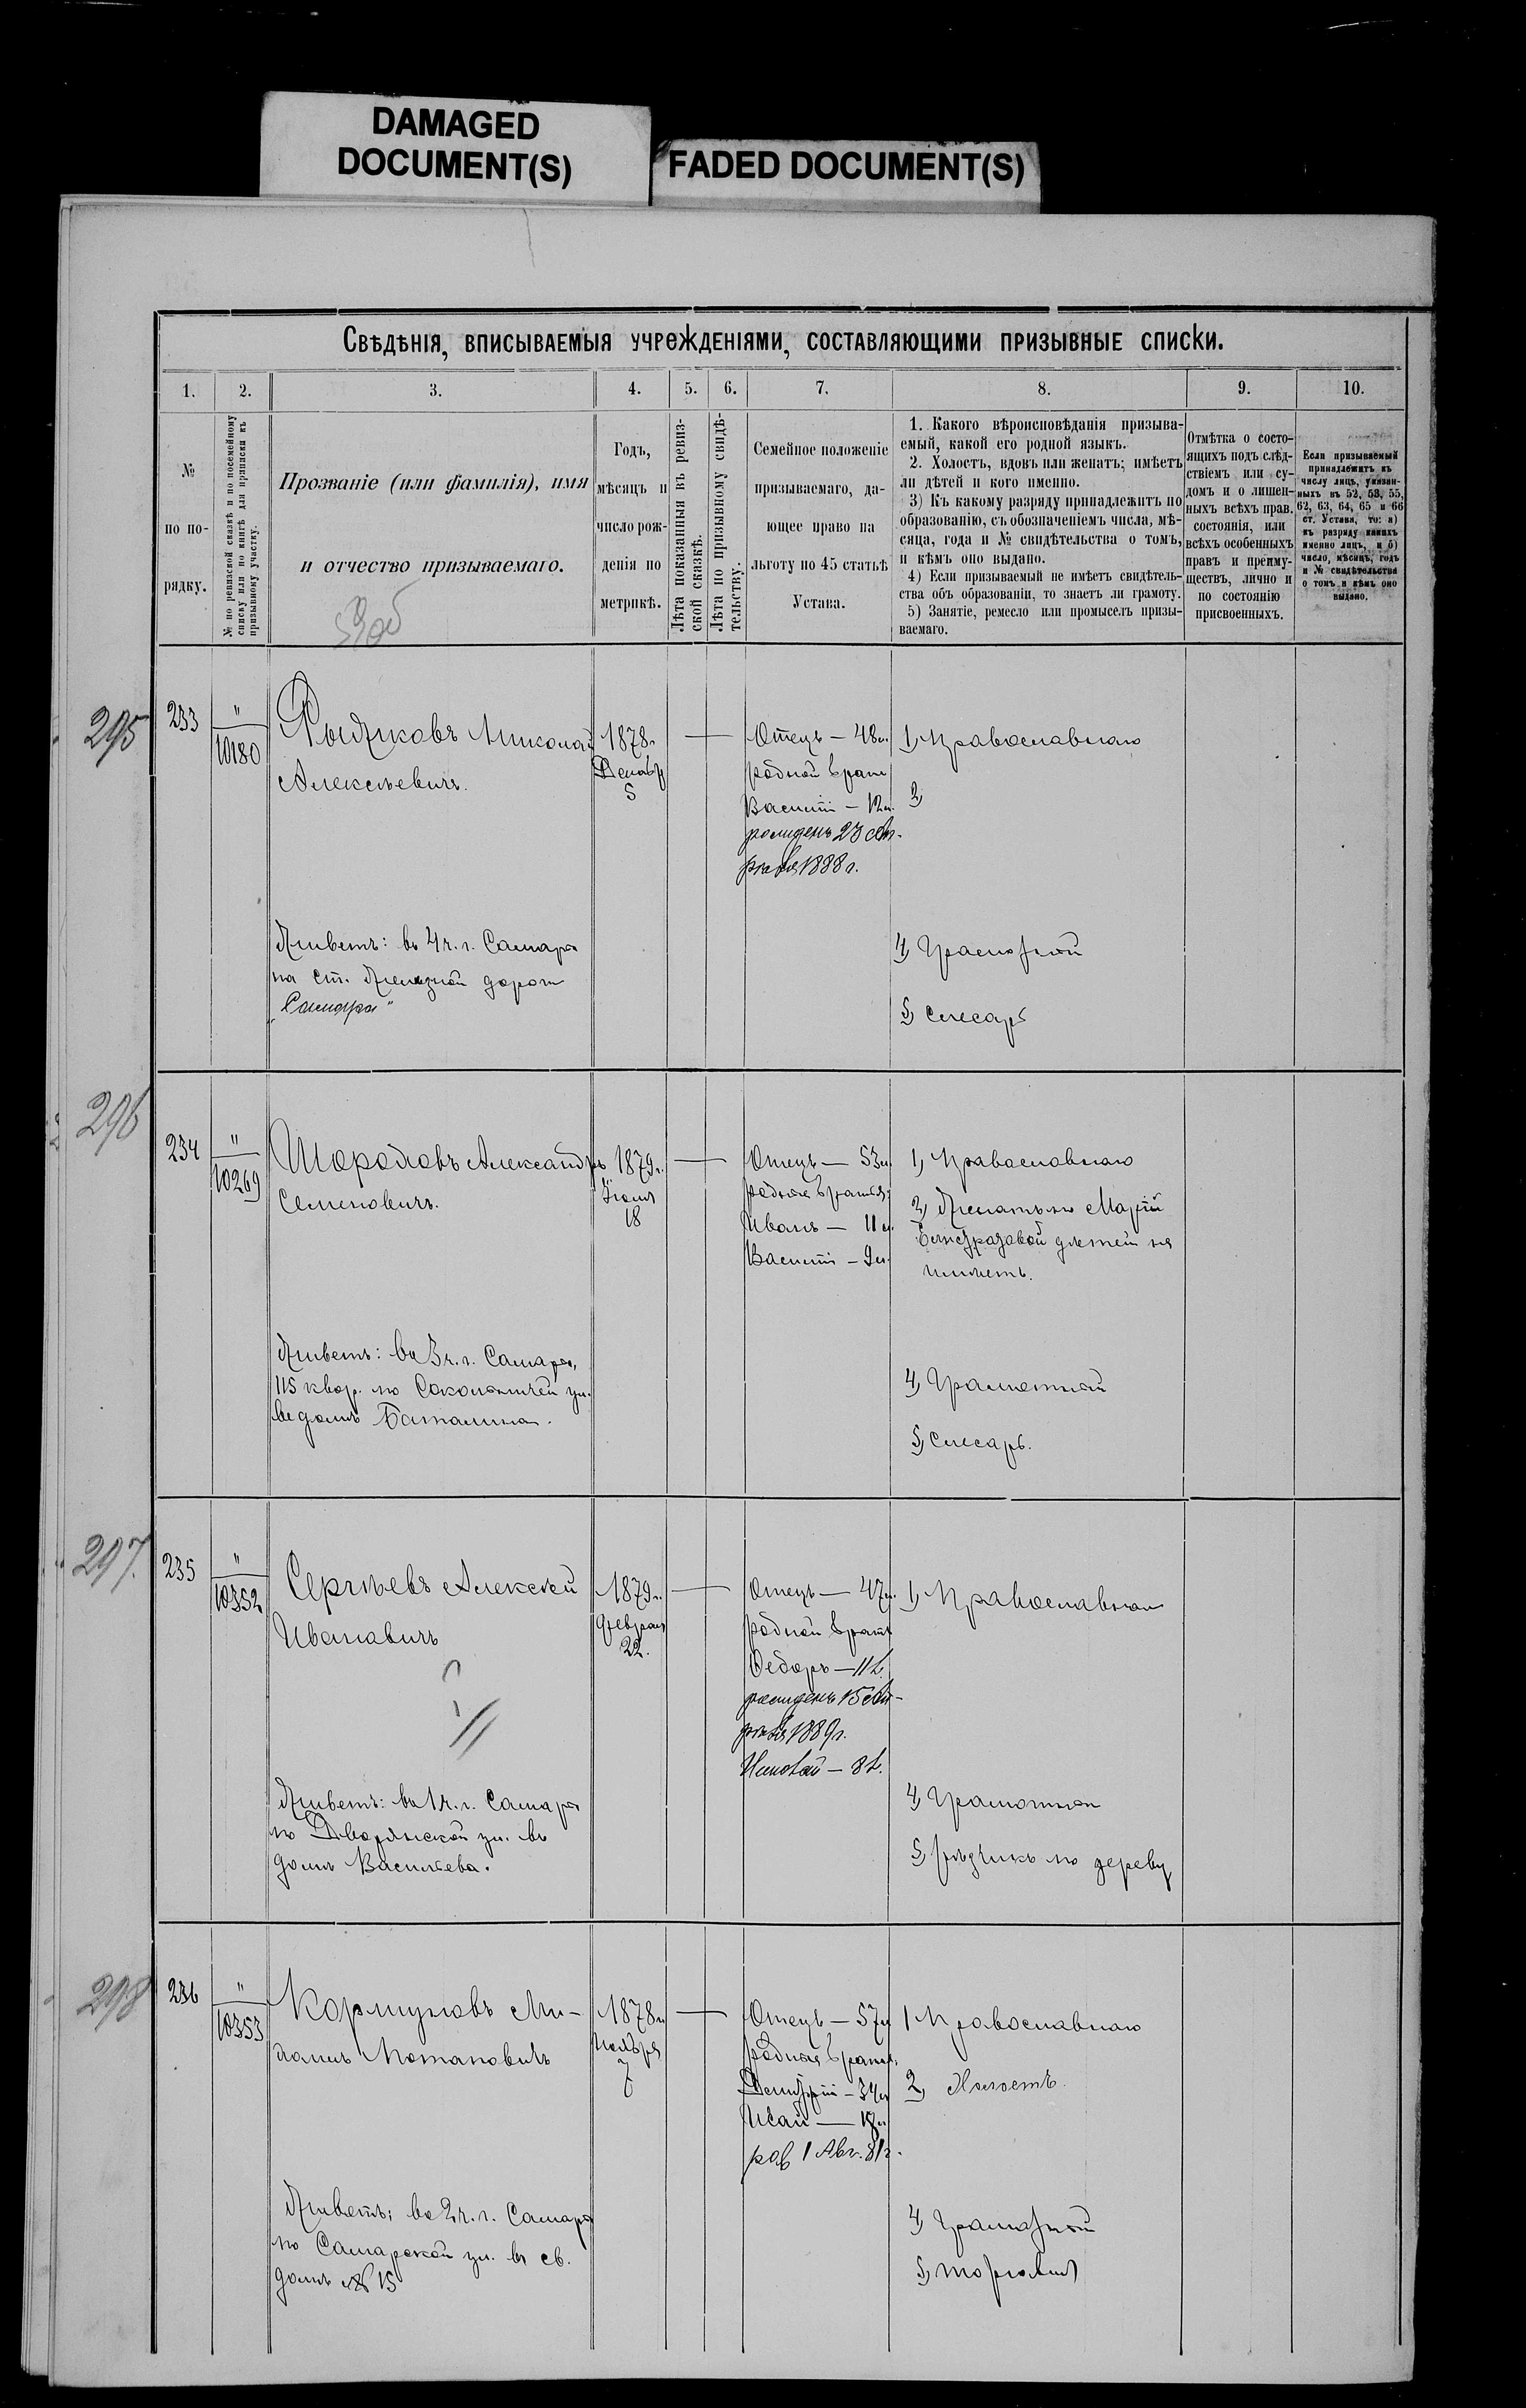 DAMAGED
DOCUMENT(S)
FADED DOCUMENT(S)
Свѣдѣнія, вписываемыя учрежденіями, составляющими призывные списки.
1. 2. 3. 4. 5. 6. 7. 8. 9. 10.
№
по по-
рядку.
№ по ревизской сказкѣ и по посемейному
списку или по книгѣ для приписки къ
призывному участку.
Прозваніе (или фамилія), имя
и отчество призываемаго.
Годъ,
мѣсяцъ и
число рож-
денія по
метрикѣ.
Лѣта показанныя въ ревиз-
ской сказкѣ.
Лѣта по призывному свидѣ-
тельству.
Семейное положеніе
призываемаго, да-
ющее право на
льготу по 45 статьѣ
Устава.
1. Какого вѣроисповѣданія призыва-
емый, какой его родной языкъ.
2. Холостъ, вдовъ или женатъ; имѣетъ
ли дѣтей и кого именно.
3) Къ какому разряду принадлежитъ по
образованію, съ обозначеніемъ числа, мѣ-
сяца, года и № свидѣтельства о томъ,
и кѣмъ оно выдано.
4) Если призываемый не имѣетъ свидѣтель-
ства объ образованіи, то знаетъ ли грамоту.
5) Занятіе, ремесло или промыселъ призы-
ваемаго.
Отмѣтка о состо-
ящихъ подъ слѣд-
ствіемъ или су-
домъ и о лишен-
ныхъ всѣхъ прав.
состоянія, или
всѣхъ особенныхъ
правъ и преиму-
ществъ, лично и
по состоянію
присвоенныхъ.
Если призываемый
принадлежитъ къ
числу лицъ, указан-
ныхъ въ 52, 53, 55,
62, 63, 64, 65 и 66
ст. Устава, то: а)
къ разряду какихъ
именно лицъ, и б)
число, мѣсяцъ, годъ
и № свидѣтельства
о томъ и кѣмъ оно
выдано.
295
233
"
10180
Николай
Алексѣевичъ.
1878г.
Декабр
5
Отецъ — 48л.
родной братъ
Василій — 12л.
рожденъ 23 сен-
тября 1888 г.
1) Православнаго
2)
Живетъ: въ 4ч. г. Самары
на ст. Желѣзной дороги
„Самара"
4) Грамотной
5) Слесарь
296
234
"
10269
Александръ
Семеновичъ.
1879г.
Іюля
18
Отецъ — 53л.
родные братья:
Иванъ — 11л.
Василій — 9л.
1) Православнаго
2) Женатъ на Маріи
дѣтей не
имѣетъ.
Живетъ: въ 3ч. г. Самары,
115 квар. по Сокольничей ул.
въ домѣ Баталина.
4) Грамотной
5) Слесарь.
297.
235
"
10352
Сергѣевъ Алексѣй
Ивановичъ
1879г.
Февраля
22.
Отецъ — 47л.
родной братъ
Федоръ — 11л.
рожденъ 15 сен-
тября 1889г.
Николай — 8л.
1) Православнаго
Живетъ: въ 1ч. г. Самары
по Дворянской ул. въ
домѣ Васильева.
4) Грамотной
5) рѣзчикъ по дереву
298
236
"
10353
Потаповичъ
1878г.
Ноября
7
Отецъ — 57л.
родные братья
Дмитрій — 34л.
Исай — 18л.
род. 1 Авг. 81г.
1 Православнаго
2) Холостъ.
Живетъ: во 2ч. г. Самары
по Самарской ул. въ св.
домѣ № 15
4) Грамотной
5) торговля